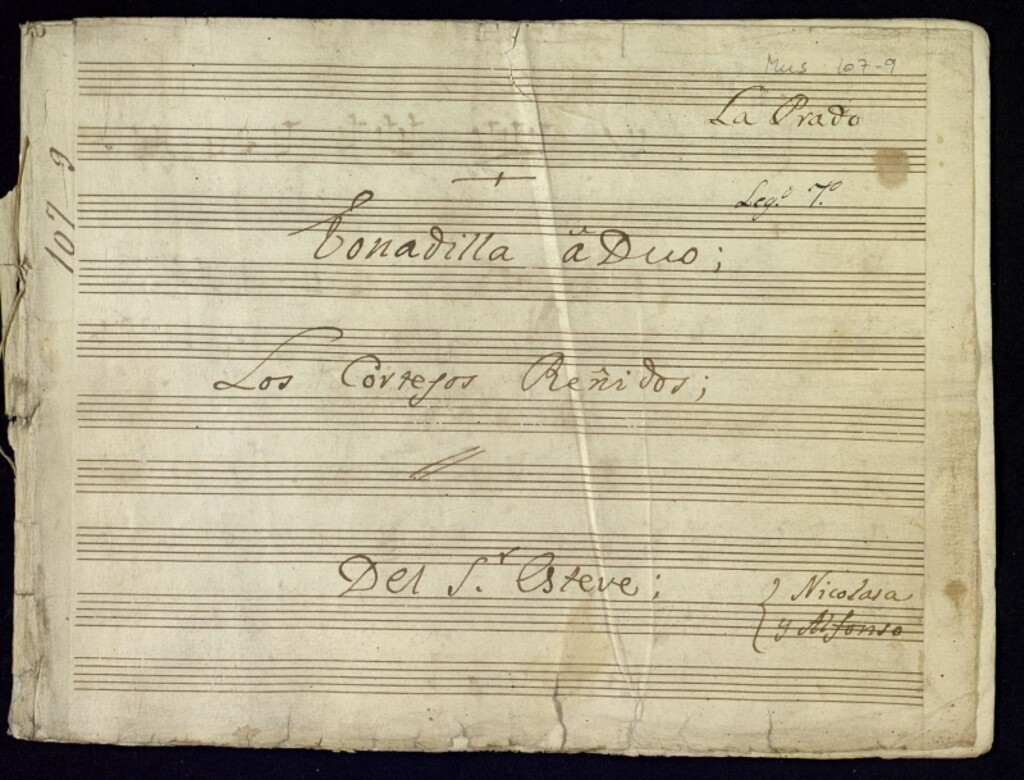 Mus 107-9
La Prado
Leg.º 7.º
Tonadilla à Duo;
Los Cortejos Reñidos;
Del S.r Esteve;
Nicolasa
y Alfonso
107 9